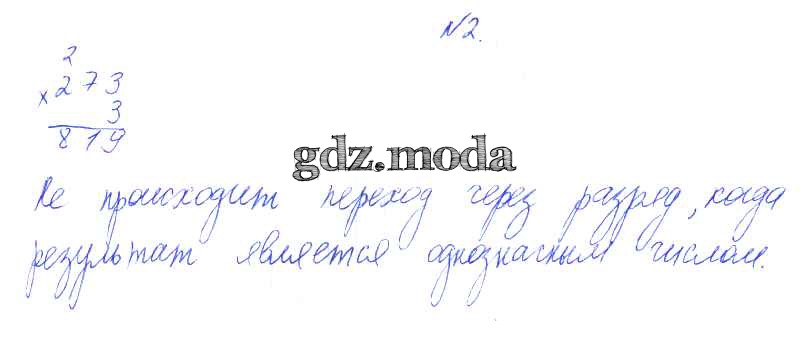 №2.
2
× 273
3
819
gdz.moda
Не происходит переход через разряд, когда
результат является однозначным числом.